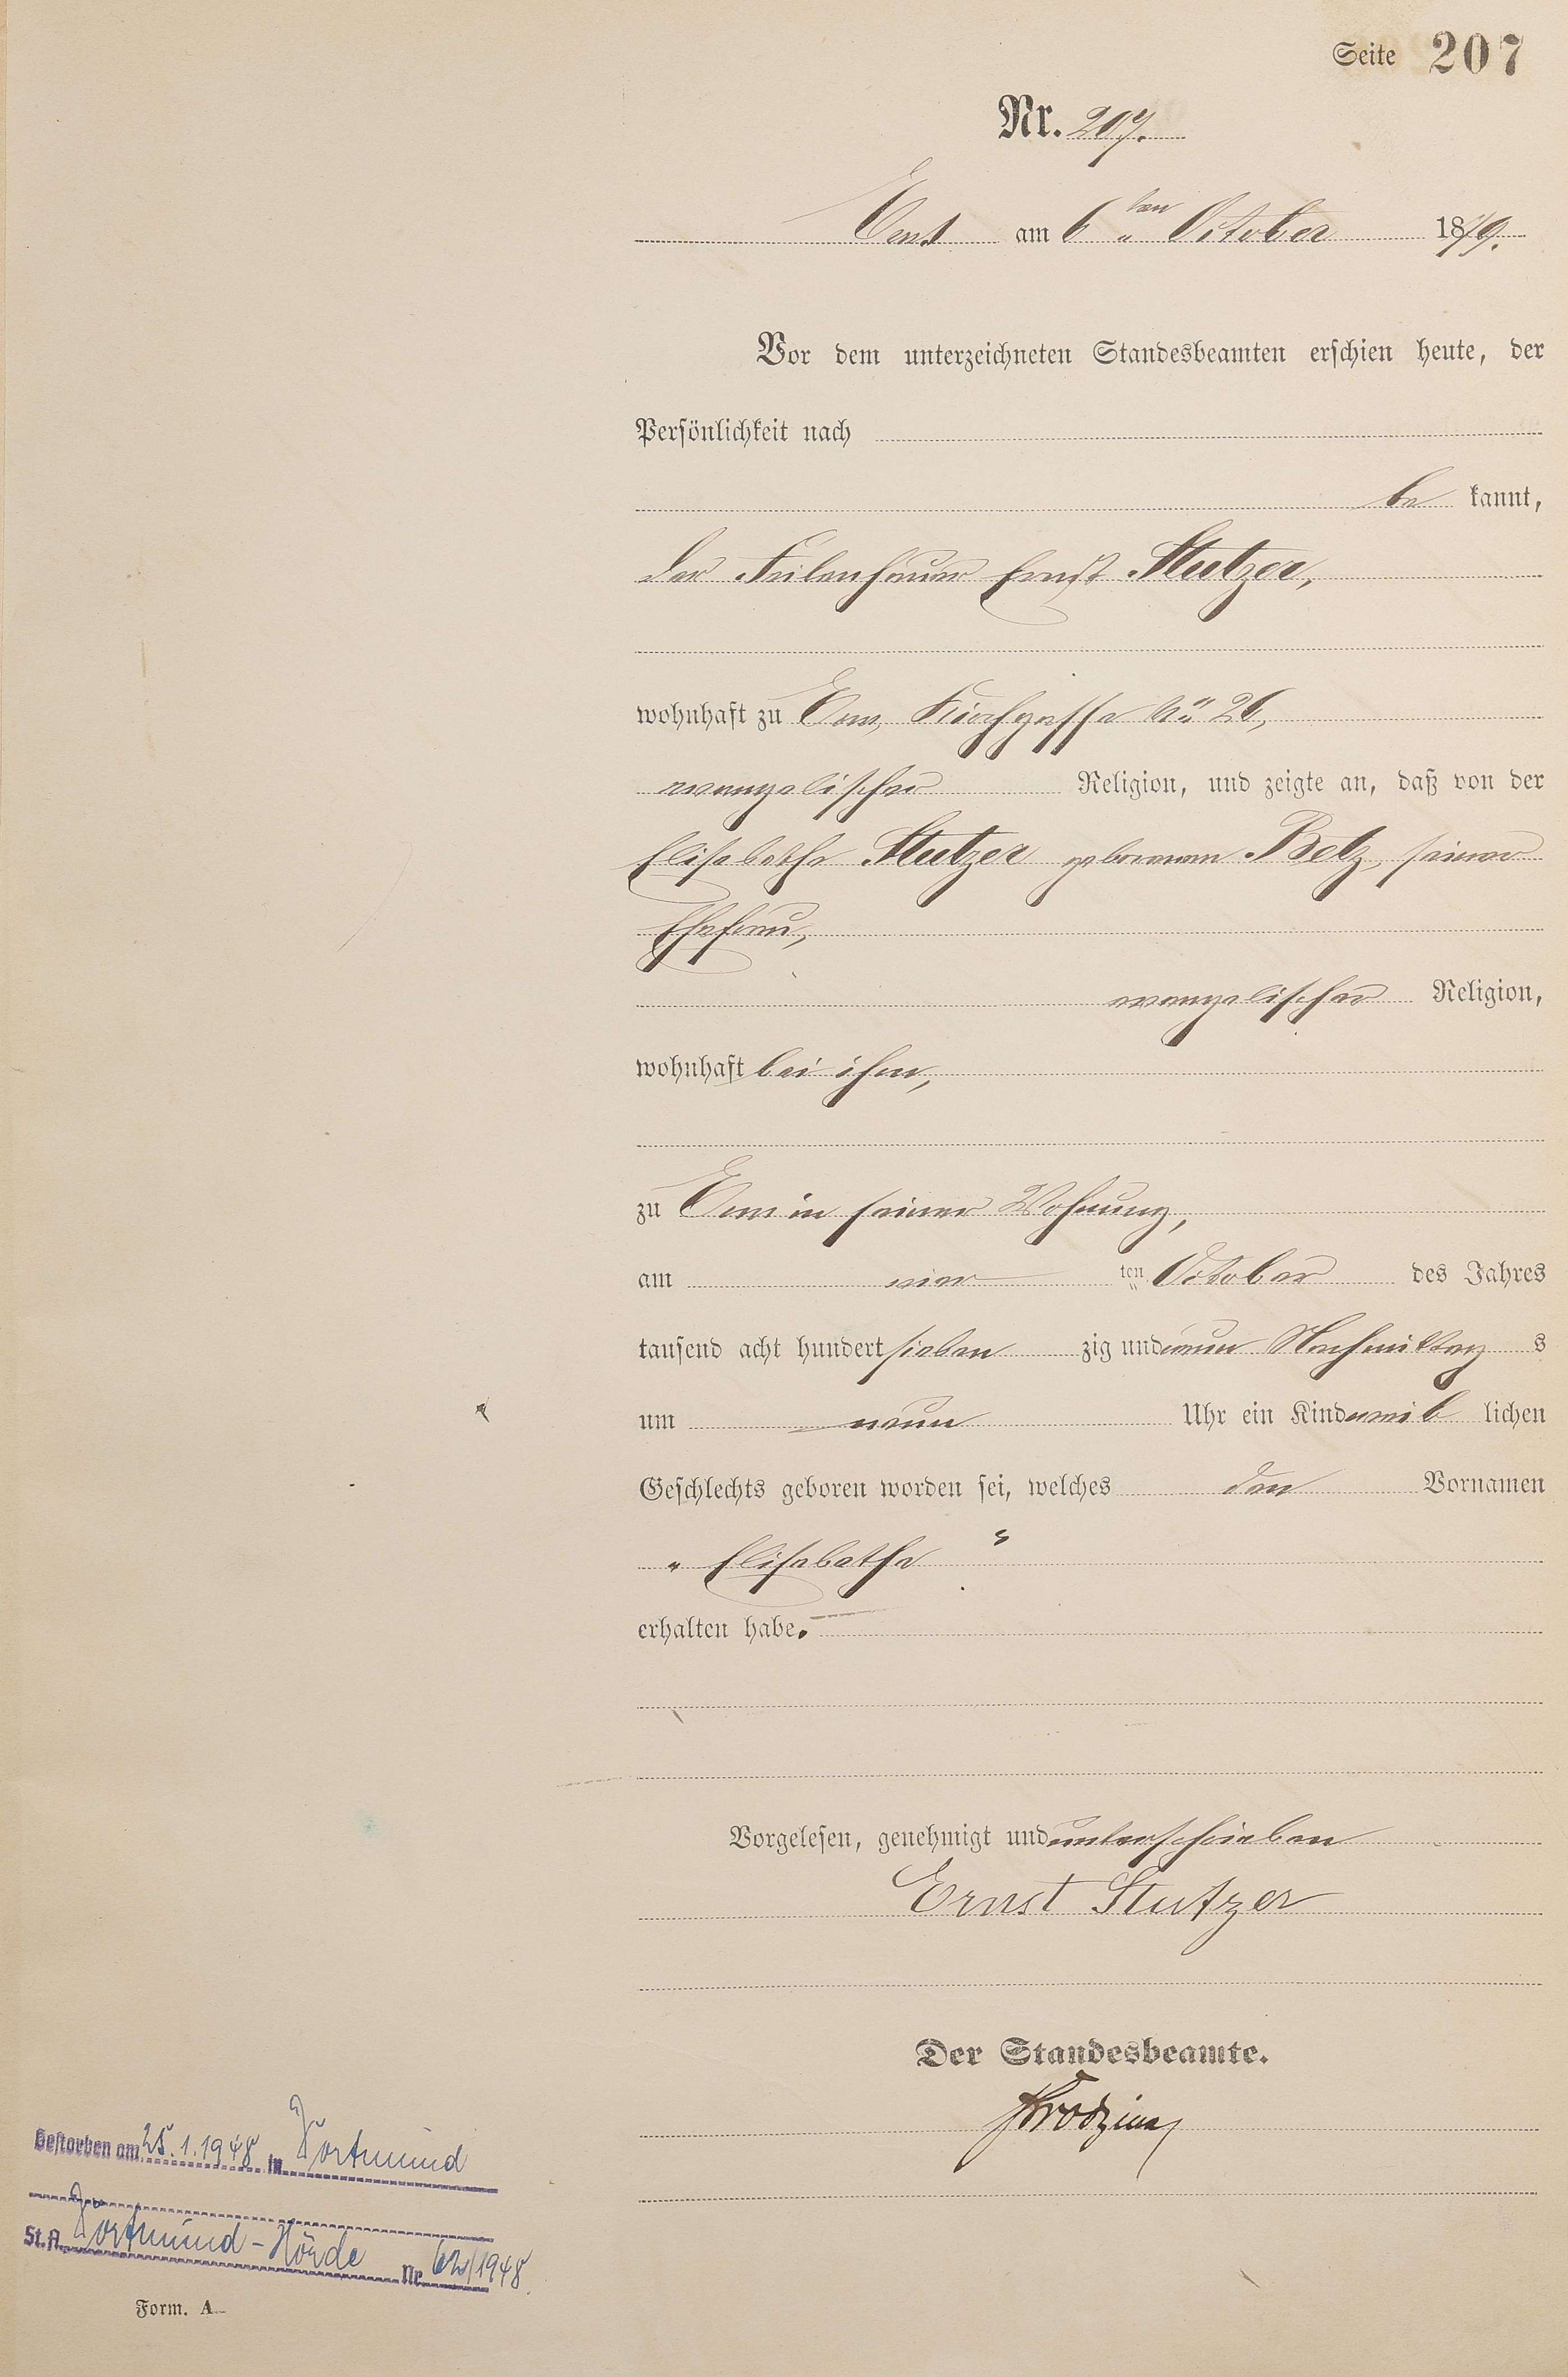 Seite 207
Nr. 207.
Ems am 6ten October 1879.
Vor dem unterzeichneten Standesbeamten erschien heute, der
Persönlichkeit nach
be kannt,
der Feilenhauer Ernst Stutzer,
wohnhaft zu Ems, Kirchgasse No 26,
evangelischer Religion, und zeigte an, daß von der
Elisabethe Stutzer geborenen Betz, seiner
Ehefrau,
evangelischer Religion,
wohnhaft bei ihm,
zu Ems in seiner Wohnung,
am vier ten October des Jahres
tausend acht hundert sieben zig und neun Nachmittag s
um neun Uhr ein Kind weib lichen
Geschlechts geboren worden sei, welches den Vornamen
„ Elisabethe "
erhalten habe.
Vorgelesen, genehmigt und unterschrieben
Ernst Stutzer
Der Standesbeamte.
Gestorben am 25.1.1948 in Dortmund
St. A. Dortmund-Hörde Nr. 62/1948.
Form. A